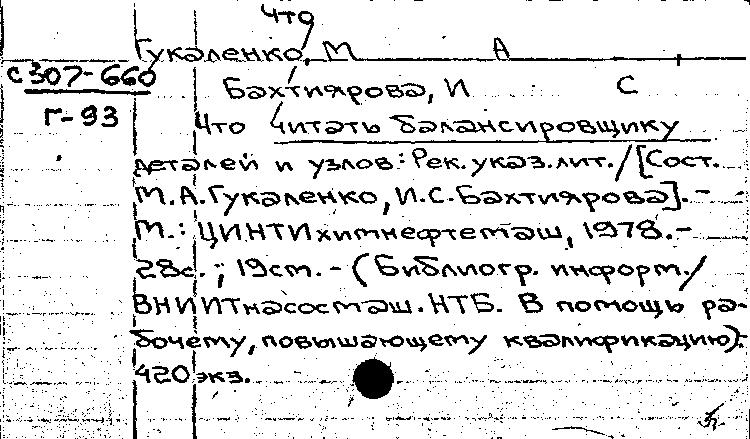 Что
Гукаленко, М А
с307-660
Бахтиярова, И С
Г-93
Что читать балансировщику
деталей и узлов: Рек. указ. лит. / [Сост.
М.А. Гукаленко, И.С. Бахтиярова]. -
М.: ЦИНТИхимнефтемаш, 1978. -
28с.; 19см. - (Библиогр. информ. /
ВНИИТнасосмаш. НТБ. В помощь ра-
бочему, повышающему квалификацию).
420 экз.